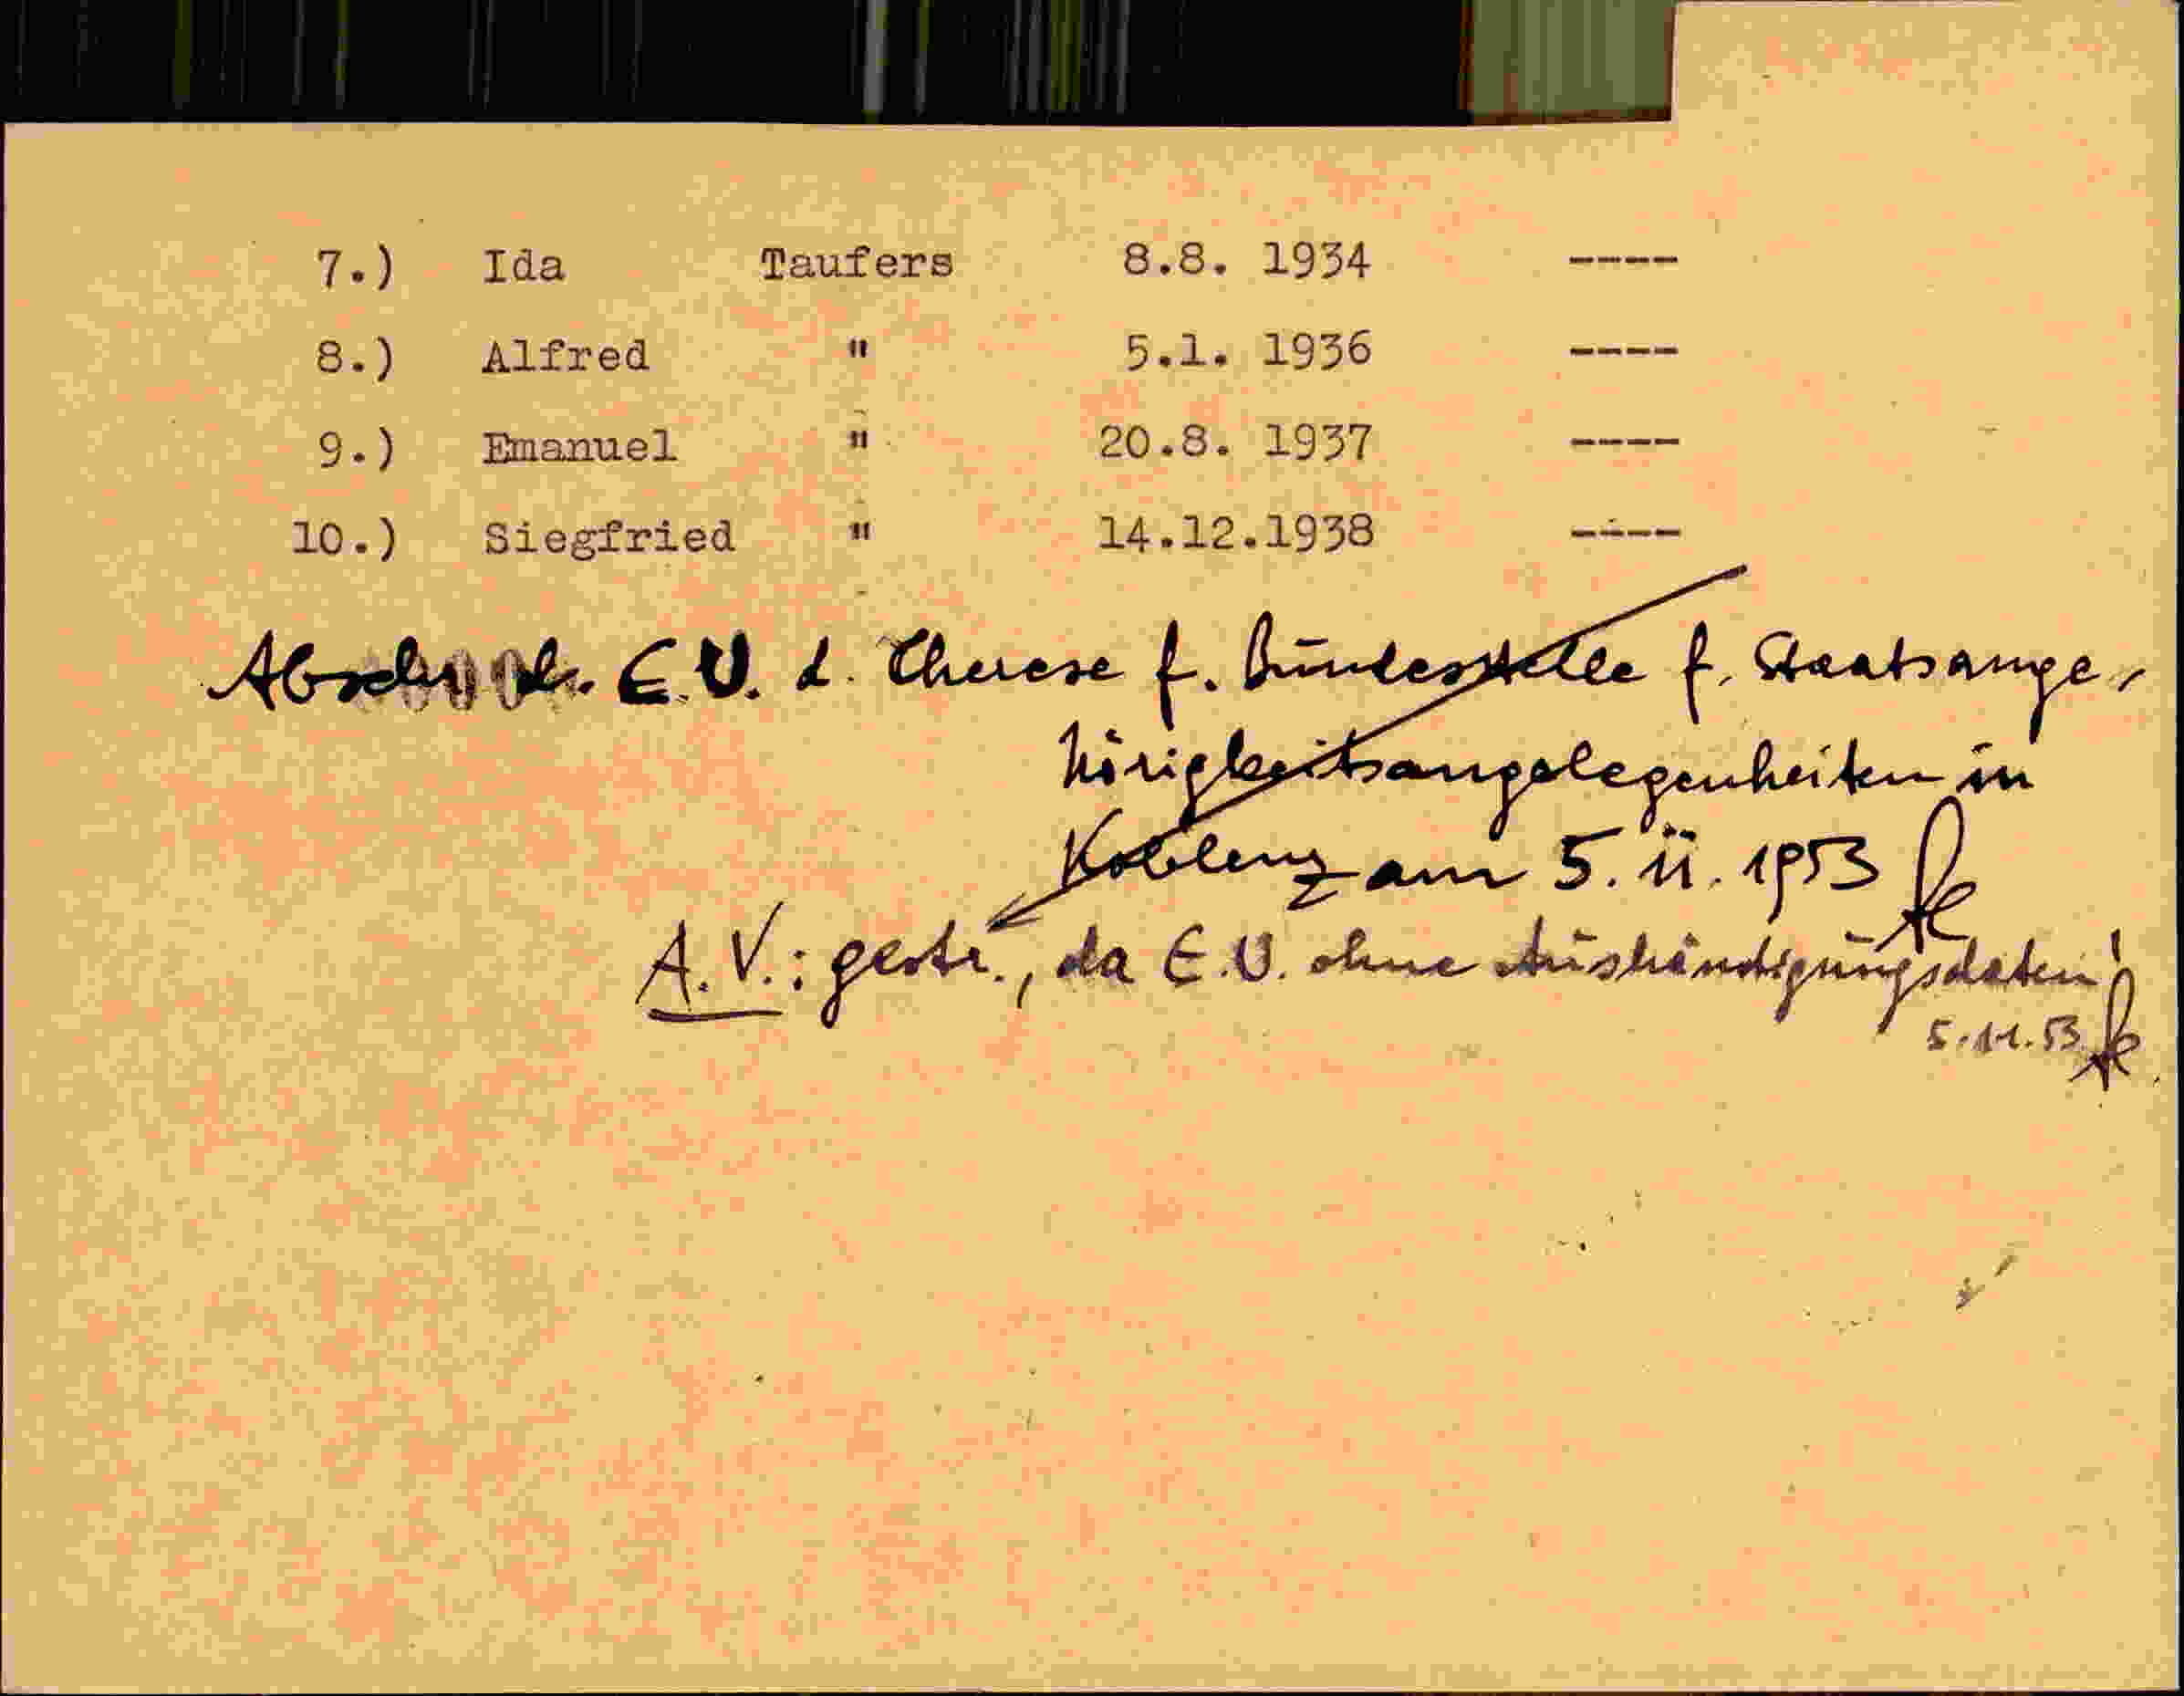 7.) Ida Taufers 8.8. 1934 ----
8.) Alfred " 5.1. 1936 ----
9.) Emanuel " 20.8. 1937 ----
10.) Siegfried " 14.12.1938 ----
Abschr. E.U. d. Therese f. Bundesstelle f. Staatsange-
hörigkeitsangelegenheiten in
Koblenz am 5.11.1953
A.V.: gestr., da E.U. ohne Aushändigungsdatum!
5.11.53